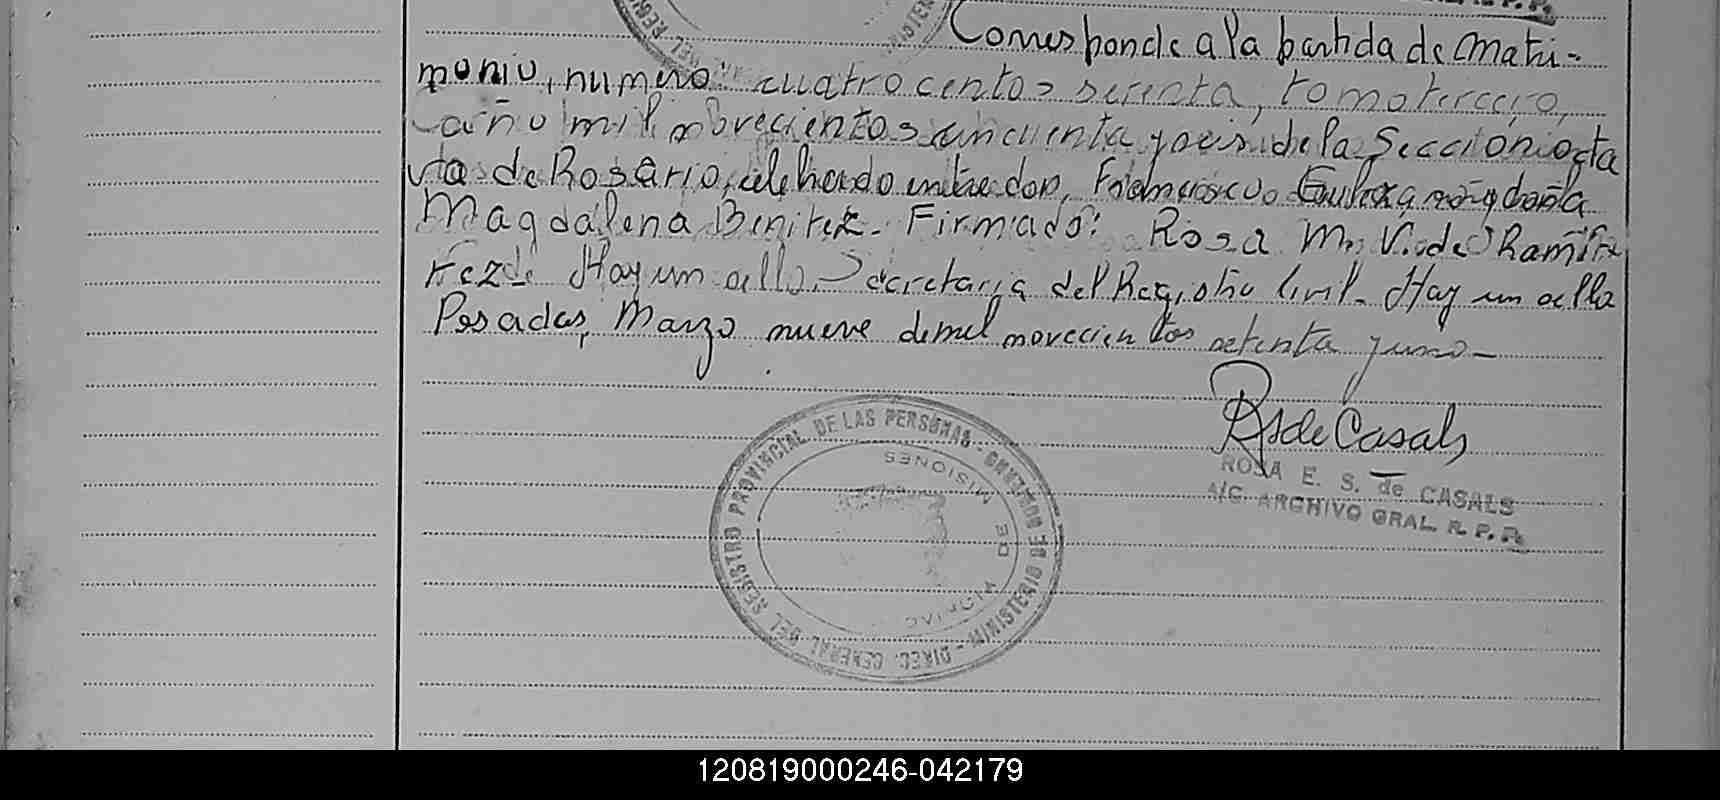 Corresponde a la partida de Matri-
monio, numero: cuatrocientos setenta, tomo tercero,
año mil novecientos cincuenta y seis de la Sección octa
va de Rosario, celebrado entre don, Francisco y doña
Magdalena Benitez. Firmado: Rosa M. V. de Rami
rez Hay un sello. Secretaria del Registro Civil. Hay un sello
Posadas, Marzo nueve de mil novecientos setenta y uno-
RSdeCasals
ROSA E. S. de CASALS
A/C. ARCHIVO GRAL. R. P. P.
DIREC. GENERAL DEL REGISTRO PROVINCIAL DE LAS PERSONAS - MINISTERIO DE GOBIERNO
MISIONES
DE
120819000246-042179